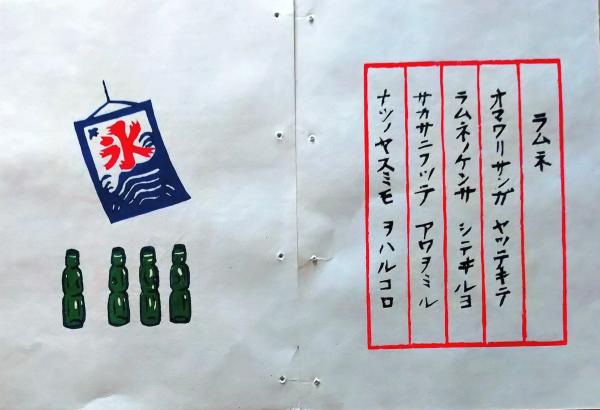 ラムネ
オマワリサンガ ヤッテキテ
ラムネノケンサ シテヰルヨ
サカサニフッテ アワヲミル
ナツノヤスミモ ヲハルコロ
氷